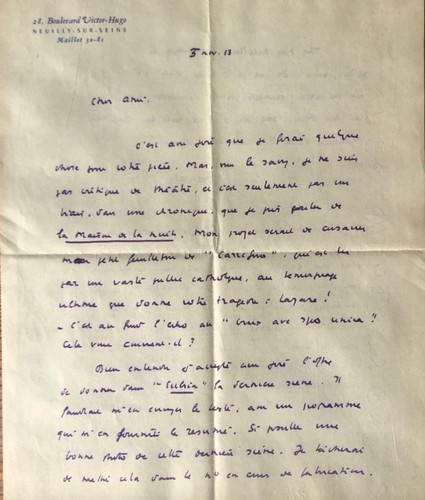 28, Boulevard Victor-Hugo
NEUILLY-SUR-SEINE
Maillot 50-81
nov. 53
Cher ami,
C'est avec joie que je ferai quelque
chose pour votre pièce. Mais, vous le savez, je ne suis
pas critique de théâtre, et c'est seulement par un
biais, dans une chronique, que je puis parler de
la Maison de la nuit. Mon projet serait de consacrer
mon petit feuilleton de "Carrefour", qui est lu
par un vaste public catholique, au témoignage
ultime que donne votre tragédie : Lazare !
- C'est au fond l'écho au "Crux ave spes unica" !
Cela vous convient-il ?
Bien entendu j'accepte avec joie l'offre
de donner dans "Ecclesia" la dernière scène. Il
faudrait m'en envoyer le texte, avec un programme
qui m'en fournirait le résumé. Si possible une
bonne photo de cette dernière scène. Je tâcherai
de mettre cela dans le n° en cours de fabrication.